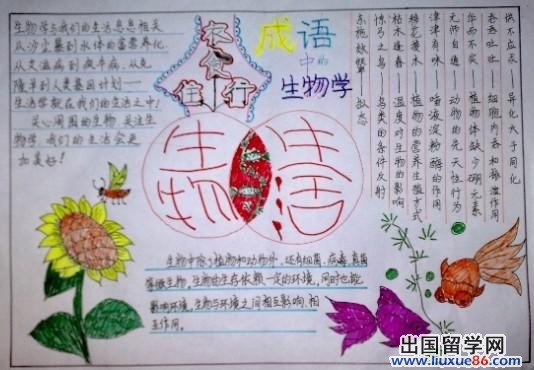 生物学与我们的生活息息相关
从沙尘暴到水体的富营养化
从艾滋病到疯牛病,从克
隆羊到人类基因计划——
生活学就在我们的生活之中!
关心周围的生物 关注生
物学 我们的生活会更
加美好!
衣食
住行
成语
中的
生物学
供不应求——异化大于同化
吞吞吐吐——细胞内吞和胞溢作用
华而不实——植物体缺少硼元素
无师自通——动物的先天性行为
津津有味——唾液淀粉酶的作用
移花接木——植物的营养生殖方式
枯木逢春——温度对生物的影响
惊弓之鸟——鸟类的条件反射
东施效颦——拟态
生物
生活
生物中除了植物和动物外,还有细菌、病毒、真菌
等微生物,生物的生存依赖一定的环境,同时也能
影响环境,生物与环境之间相互影响、相
互作用。
出国留学网
www.liuxue86.com